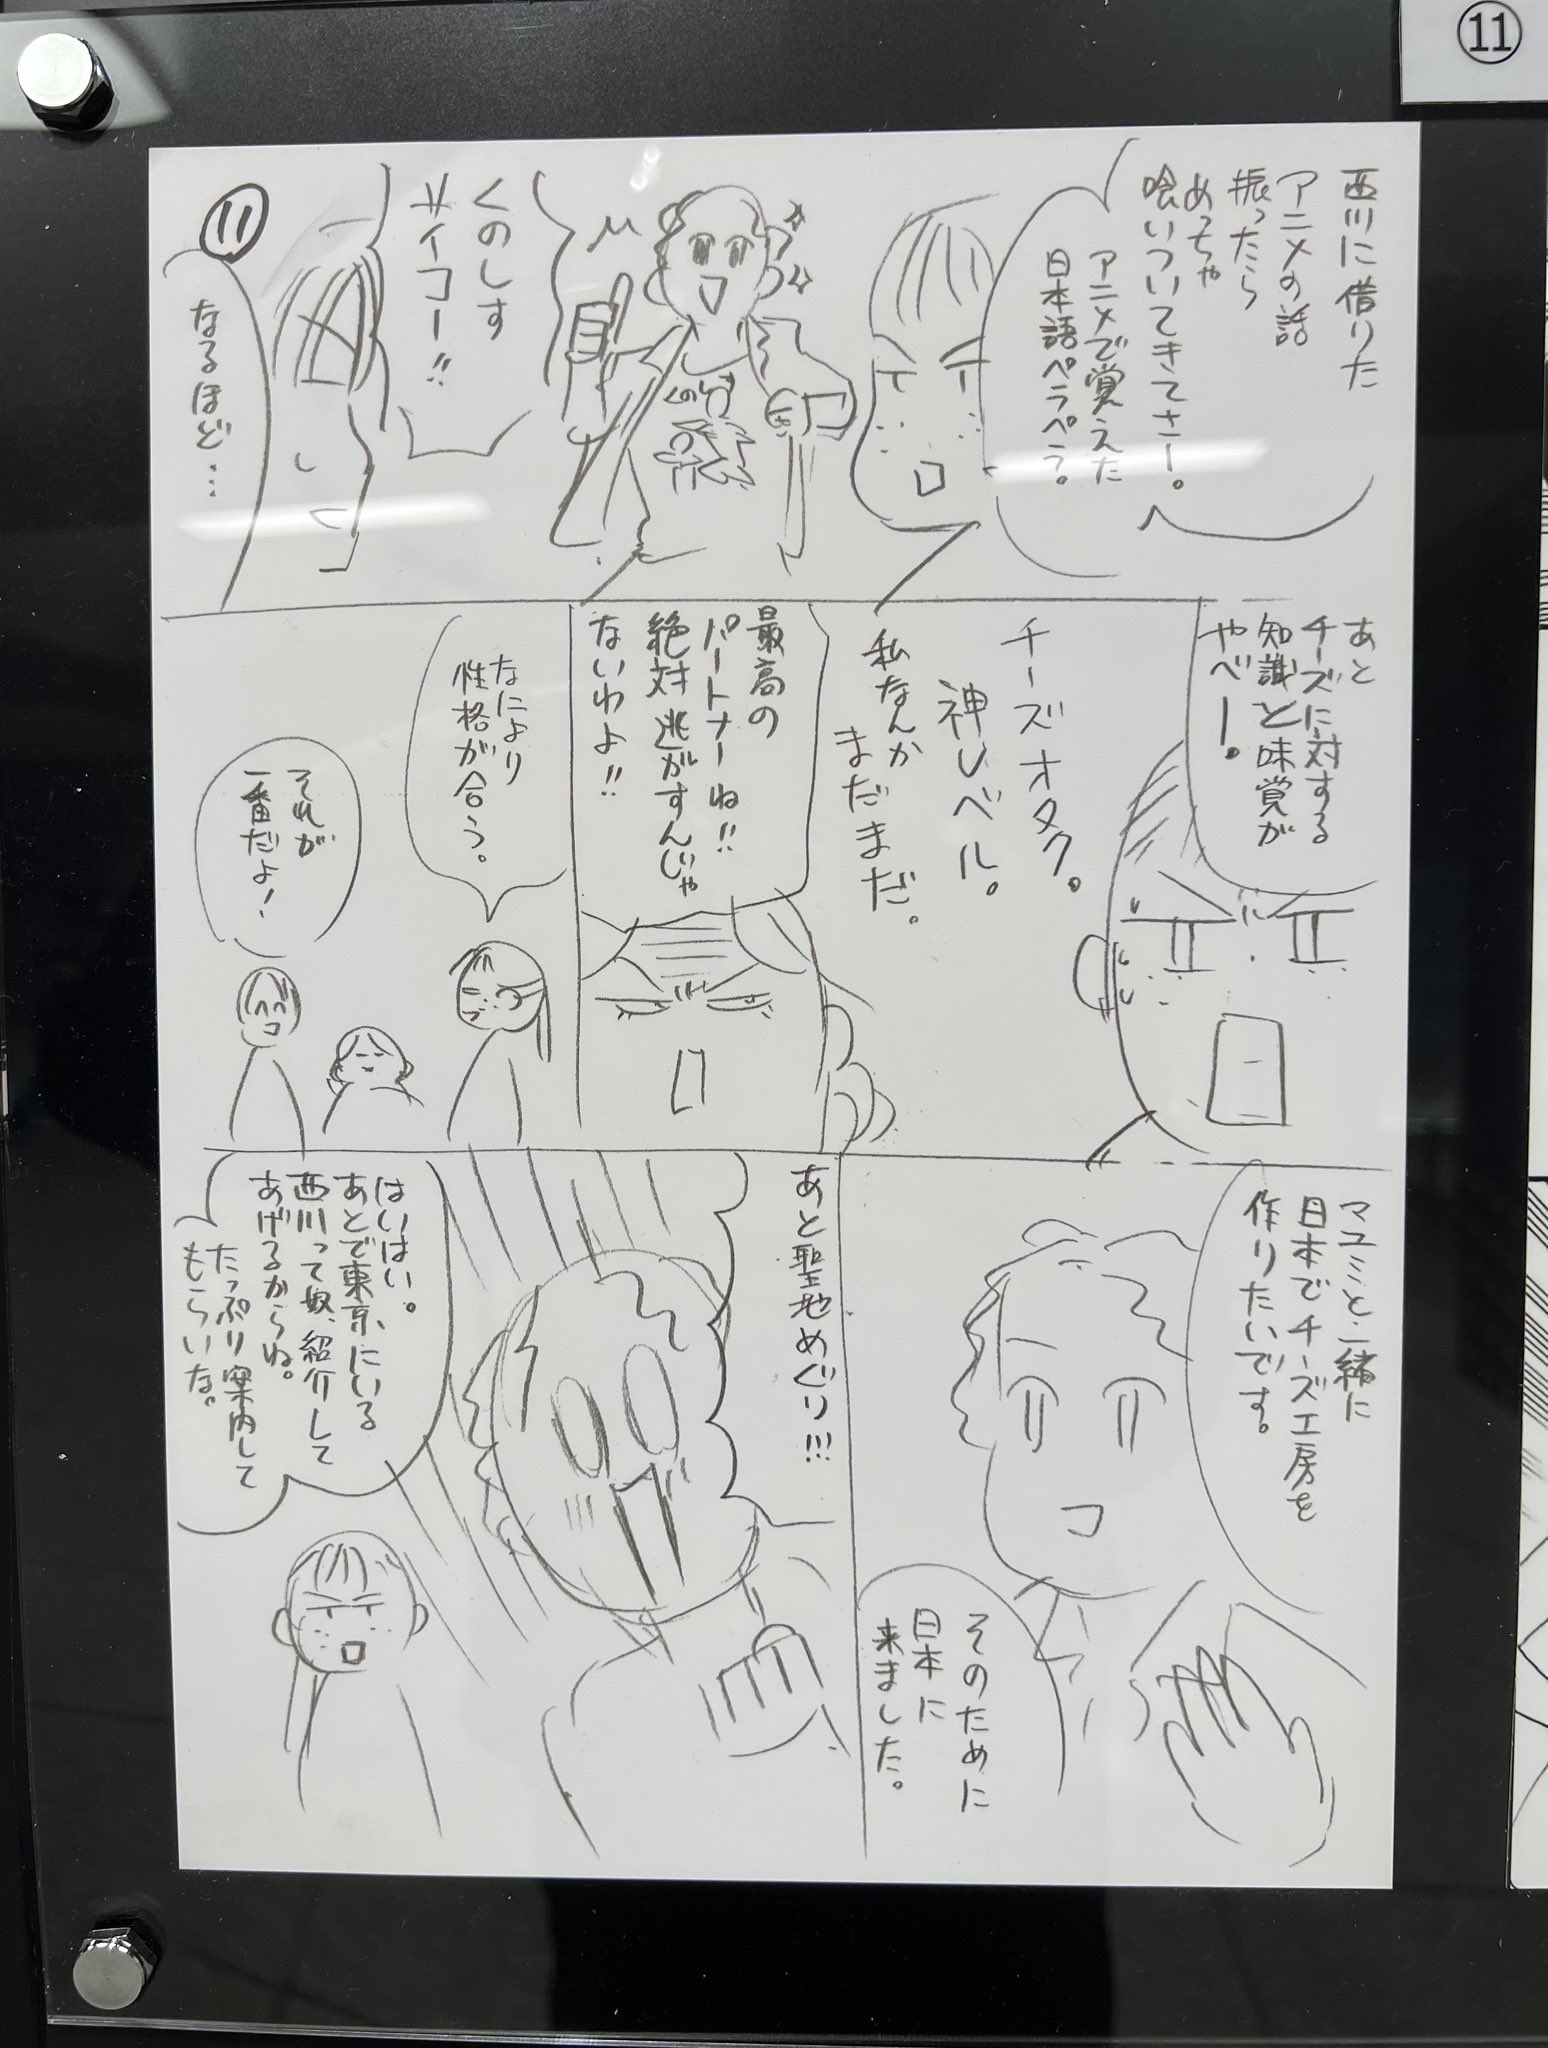 ⑪
西川に借りた
アニメの話
振ったら
めっちゃ
喰いついてきてさー。
アニメで覚えた
日本語ペラペラ。
くのしす
サイコー!!
⑪
なるほど…
あと
チーズに対する
知識と味覚が
やべー。
チーズオタク。
神レベル。
私なんか
まだまだ。
最高の
パートナーね!!
絶対逃がすんじゃ
ないわよ!!
なにより
性格が合う。
それが
一番だよ!
マユミと一緒に
日本でチーズ工房を
作りたいです。
そのために
日本に
来ました。
あと聖地めぐり!!!
はいはい。
あとで東京にいる
西川って奴、紹介して
あげるからね。
たっぷり案内して
もらいな。